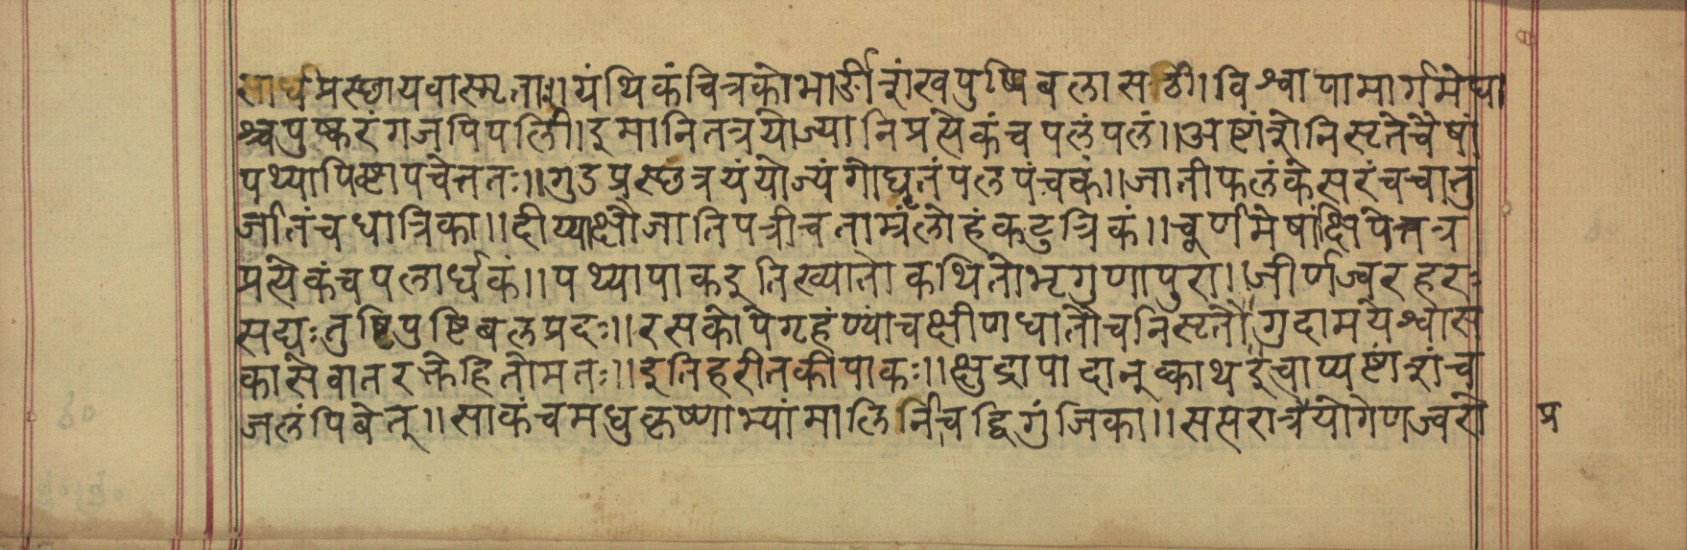 सार्धप्रस्छायवास्मृताः॥ ग्रंथिकंचित्रकोभार्ङीशंखपुष्पिबलासठी। विश्वापामार्गमेघा
श्चपुष्करंगजपिपली। इमानितत्रयोज्यानिप्रत्येकंचपलंपलं॥ अष्टांशेनिसृतेचैषां
पथ्यापिष्टापचेत्ततः॥ गुडप्रस्छत्रयंयोज्यंगोघृतंपलपंचकं॥ जातीफलंकेसरंचचातु
र्जातंचधात्रिका॥ दीप्याक्षौजातिपत्रीचताम्रंलोहंकटुत्रिकं॥ चूर्णमेषांक्षिपेत्तत्र
प्रत्येकंचपलार्धकं॥ पथ्यापाकइतिख्यातोकथितोभृगुणापुरा॥ जीर्णज्वरहरः
सद्यःतुष्टिपुष्टिबलप्रदः॥ रसकोपेगृहंण्यांचक्षीणधातौचनिसृतौ॥ गुदामयेश्वास
कासेवातरक्तेहितोमतः॥ इतिहरीतकीपाकः॥ क्षुद्रापादानुक्वाथइंचाप्यष्टांशंच
जलंपिबेत्॥ साकंचमधुकृष्णाभ्यांमालिनींचद्विगुंजिका॥ सप्तरात्रेयोगेणज्वरो
प्र